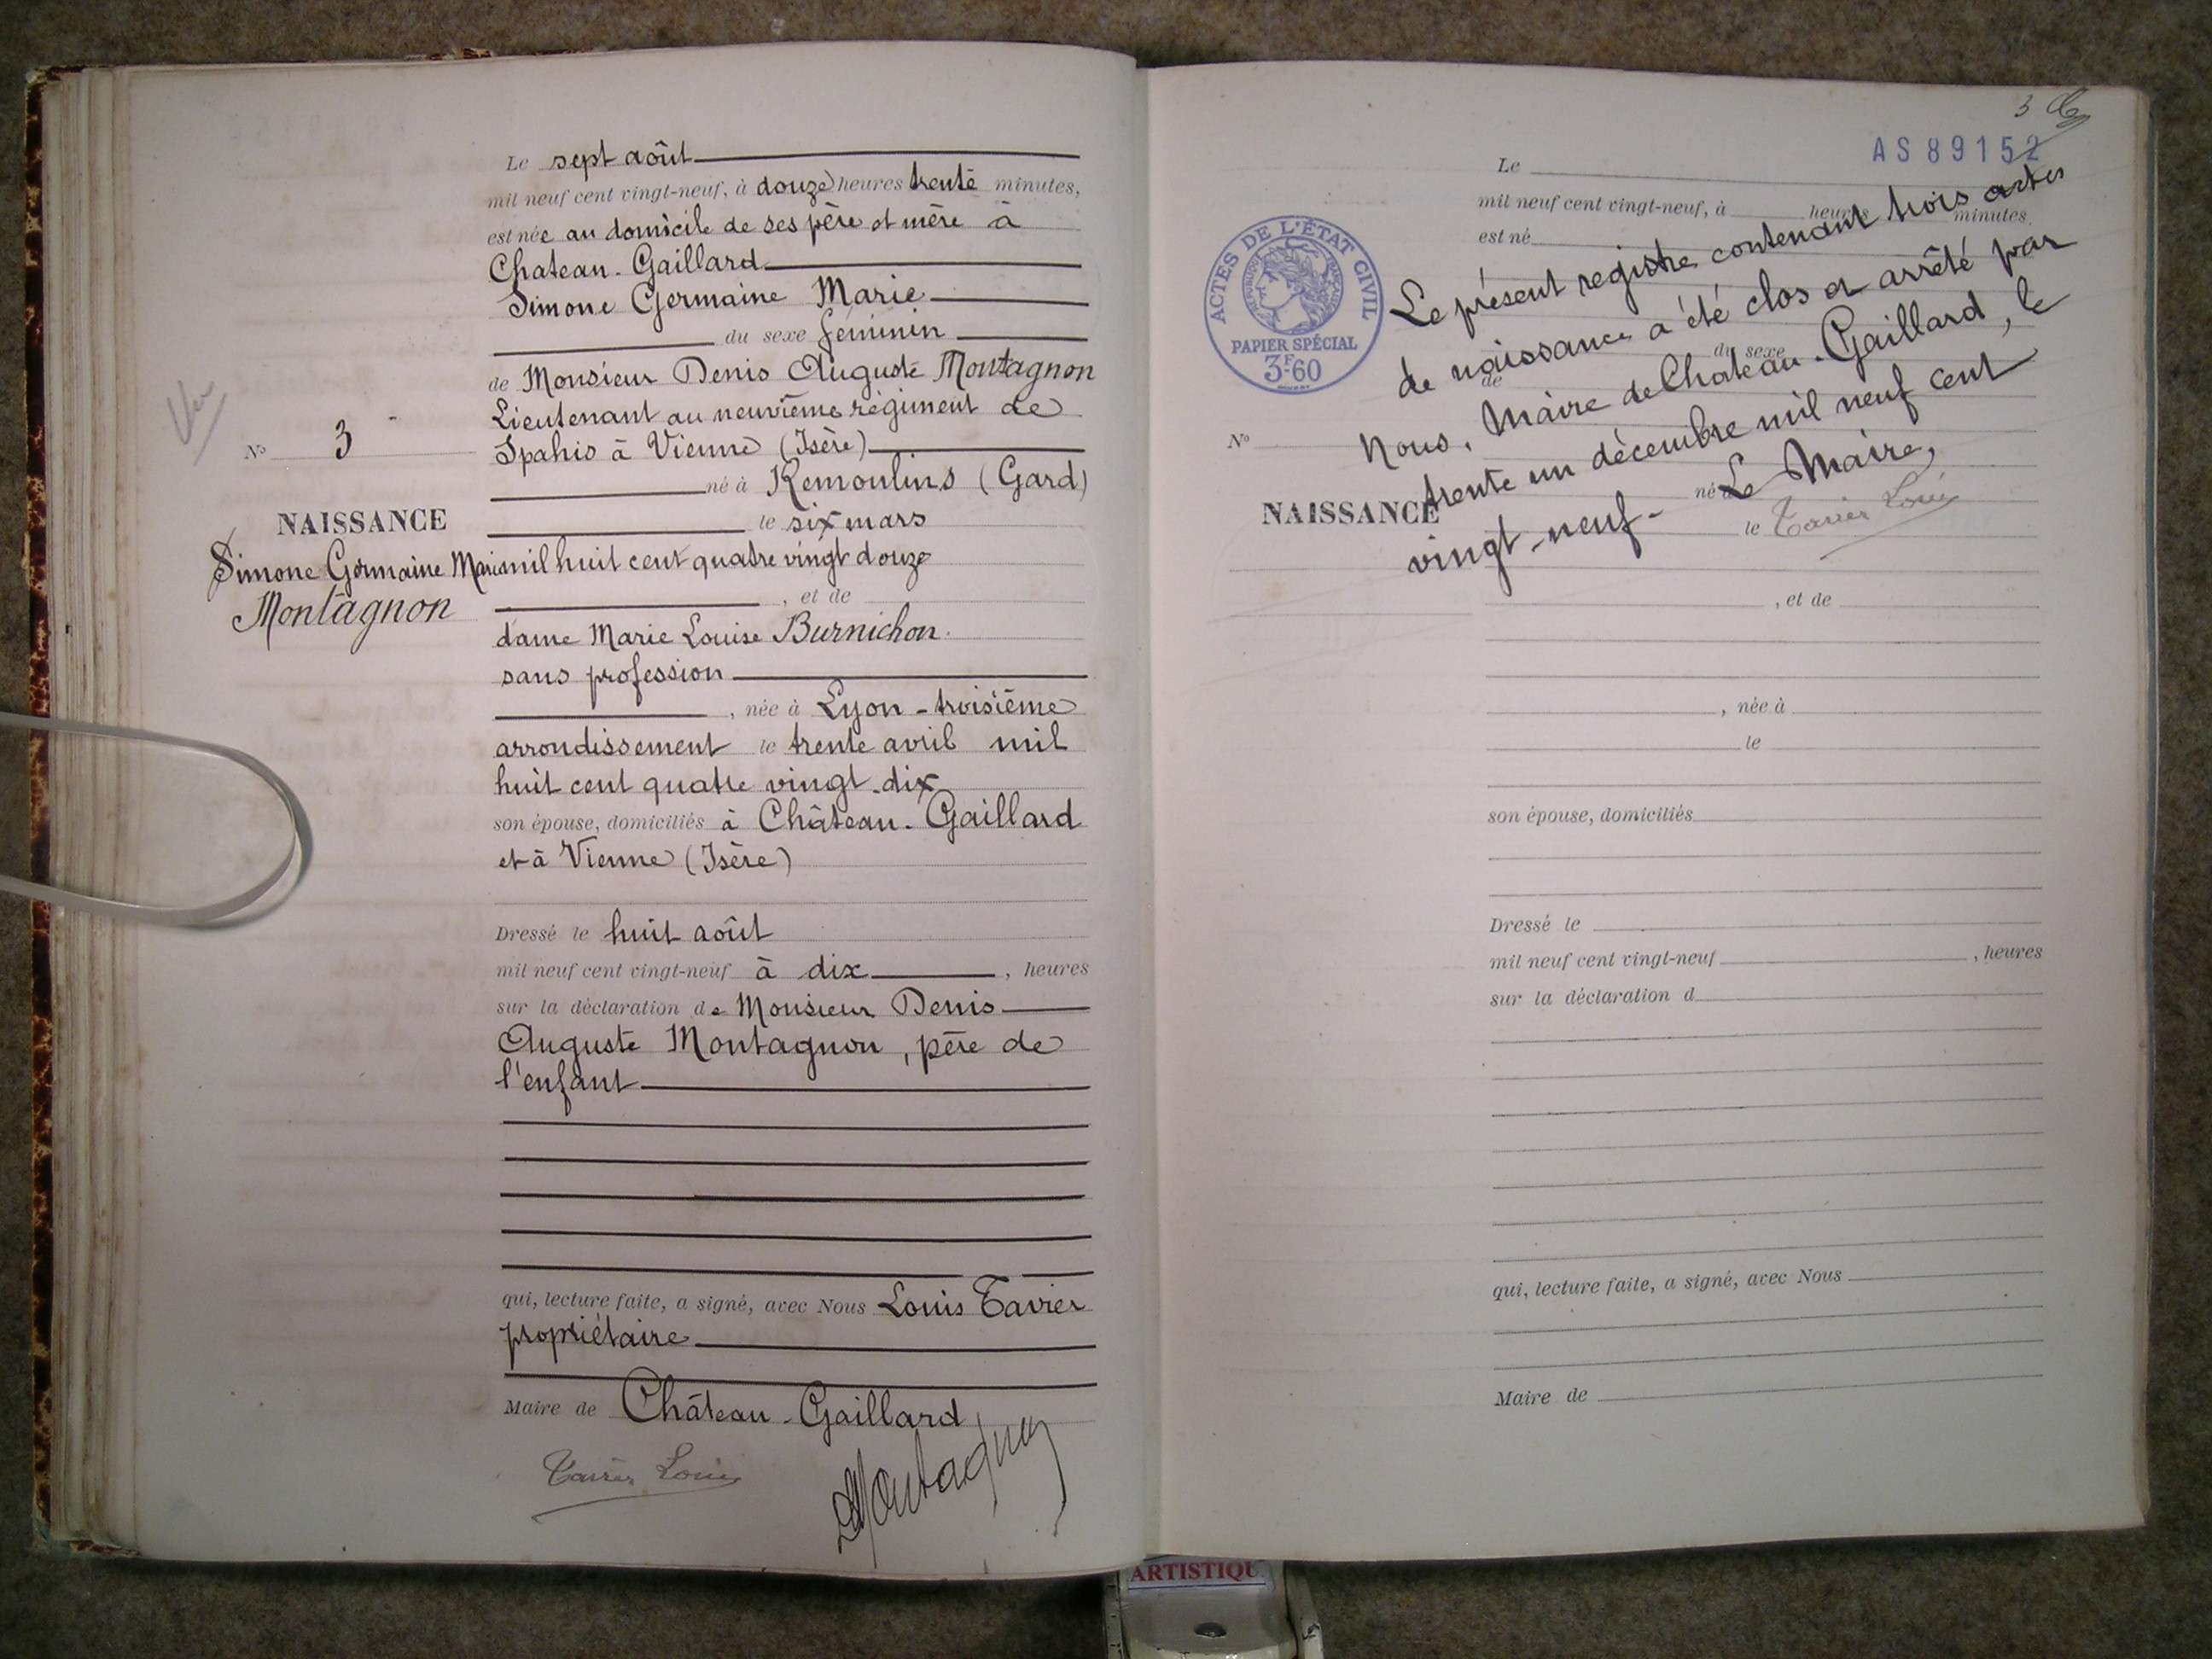 Vu
N° 3
NAISSANCE
Simone Germaine Marie
Montagnon
Le sept août
mil neuf cent vingt-neuf, à douze heures trente minutes,
est née au domicile de ses père et mère à
Chateau-Gaillard
Simone Germaine Marie
du sexe féminin
de Monsieur Denis Auguste Montagnon
Lieutenant au neuvième régiment de
Spahis à Vienne (Isère)
né à Remoulins (Gard)
le six mars
mil huit cent quatre vingt douze
, et de
dame Marie Louise Burnichon
sans profession
, née à Lyon - troisième
arrondissement le trente avril mil
huit cent quatre vingt-dix
son épouse, domiciliés à Château-Gaillard
et à Vienne (Isère)
Dressé le huit août
mil neuf cent vingt-neuf à dix, heures
sur la déclaration de Monsieur Denis
Auguste Montagnon, père de
l'enfant
qui, lecture faite, a signé, avec Nous Louis Tavier
propriétaire
Maire de Château-Gaillard
Tavier Louis
Montagnon
3
AS 89152
ACTES DE L'ÉTAT CIVIL
RÉPUBLIQUE FRANÇAISE
PAPIER SPÉCIAL
3F60
Le
mil neuf cent vingt-neuf, à heures minutes
est né
Le présent registre contenant trois actes
de naissance a été clos et arrêté par
du sexe
de
Nous, Maire de Chateau-Gaillard, le
N°
trente un décembre mil neuf cent
vingt-neuf - Le Maire,
NAISSANCE
né à
le
Tavier Louis
, et de
, née à
le
son épouse, domiciliés
Dressé le
mil neuf cent vingt-neuf , heures
sur la déclaration d
qui, lecture faite, a signé, avec Nous
Maire de
ARTISTIQU